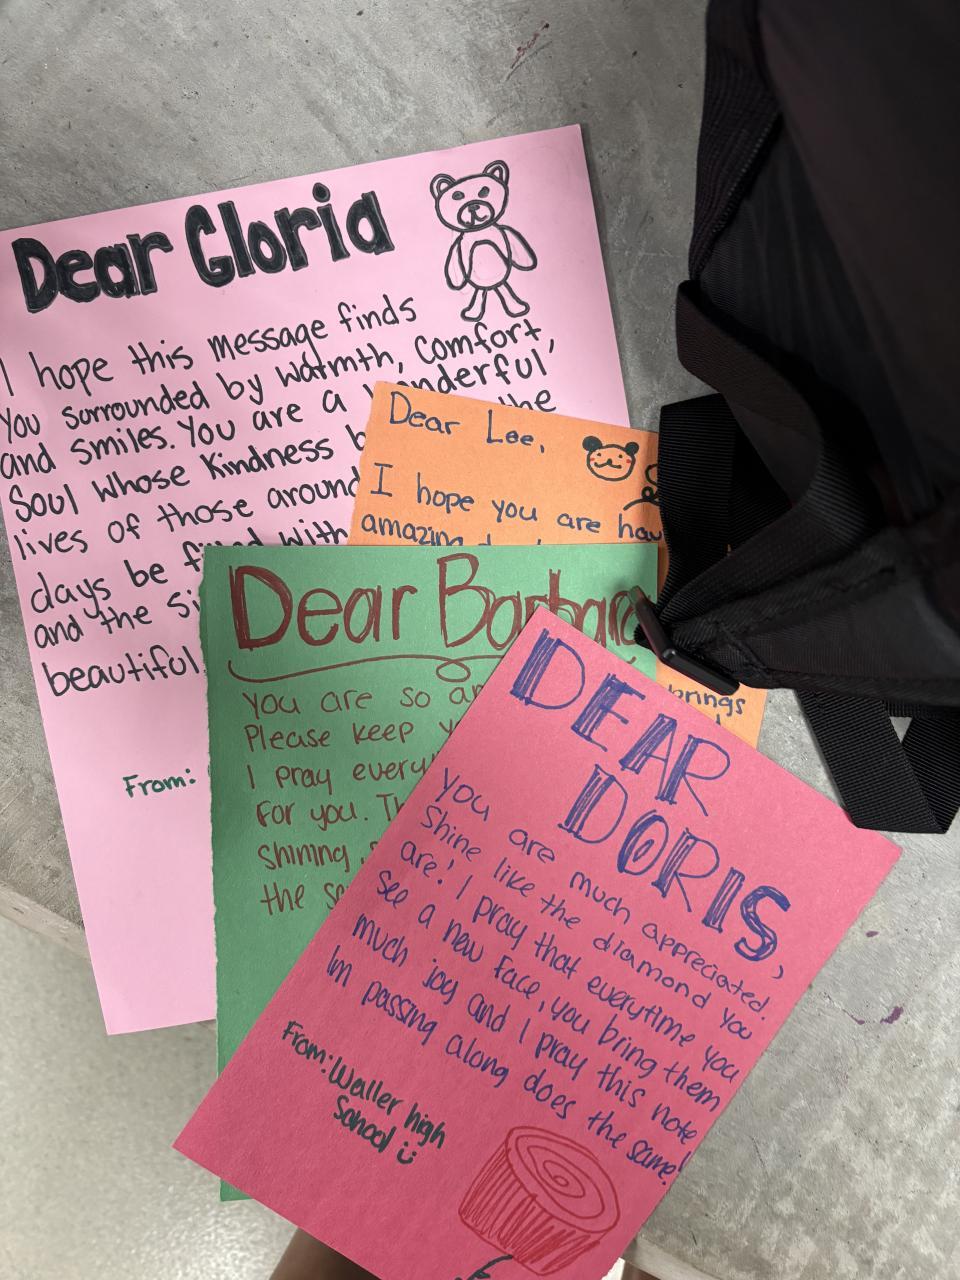 Dear Gloria
I hope this message finds
you surrounded by warmth, comfort,
and smiles. You are a wonderful
soul whose kindness the
lives of those around
days be filled with
and the
beautiful
From:
Dear Lee,
I hope you are
amazing
brings
Dear Barbara
You are so
Please keep
I pray
for you.
shining
the
DEAR
DORIS,
You are much appreciated.
Shine like the diamond you
are! I pray that everytime you
see a new face, you bring them
much joy and I pray this note
Im passing along does the same!
From: Waller high
School